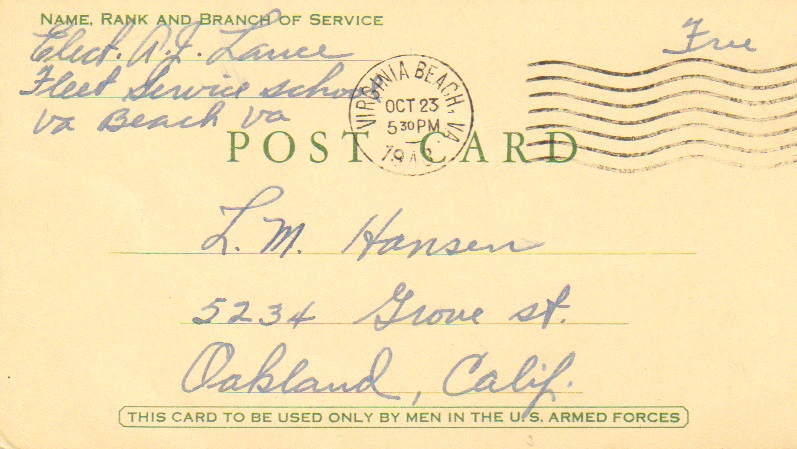 NAME, RANK AND BRANCH OF SERVICE
Elect. A.J. Lance
Free
Fleet Service school
Va Beach Va
VIRGINIA BEACH, VA.
OCT 23
5 30 PM
POST CARD
L. M. Hansen
5234 Grove st.
Oakland, Calif.
THIS CARD TO BE USED ONLY BY MEN IN THE U.S. ARMED FORCES